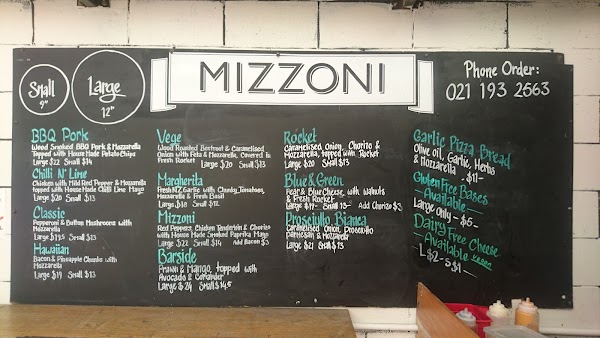 Small
9"
Large
12"
MIZZONI
Phone Order:
021 193 2563
BBQ Pork
Wood Smoked BBQ Pork & Mozzarella
Topped with House Made Potato Chips
Large $22 Small $14
Chilli N' Lime
Chicken with Mild Red Pepper & Mozzarella
topped with House Made Chilli Lime Mayo
Large $20 Small $13
Classic
Pepperoni & Button Mushrooms with
Mozzarella
Large $19.5 Small $13
Hawaiian
Bacon & Pineapple Chunks with
Mozzarella
Large $19 Small $13
Vege
Wood Roasted Beetroot & Caramelised
Onion with Feta & Mozzarella, Covered in
Fresh Rocket Large $20 Small $13
Margherita
Fresh NZ Garlic with Chunky Tomatoes,
Mozzarella & Fresh Basil
Large $18 Small $12
Mizzoni
Red Peppers, Chicken Tenderloin & Chorizo
with House Made Smoked Paprika Mayo
Large $21 Small $14 Add Bacon $3
Barside
Prawn & Mango, topped with
Avocado & Coriander
Large $24 Small $14.5
Rocket
Caramelised Onion, Chorizo &
Mozzarella, topped with Rocket
Large $20 Small $13
Blue & Green
Pear & Blue Cheese, with Walnuts
& Fresh Rocket
Large $19 Small 13 Add Chorizo $3
Prosciutto Bianca
Caramelised Onion, Prosciutto
Parmesan & Mozzarella
Large $21 Small $13
Garlic Pizza Bread
Olive oil, Garlic, Herbs
& Mozzarella - $11 -
Gluten Free Bases
- Available -
Large Only - $6 -
Dairy Free Cheese
- Available vegan
- L $2 - S $1 -